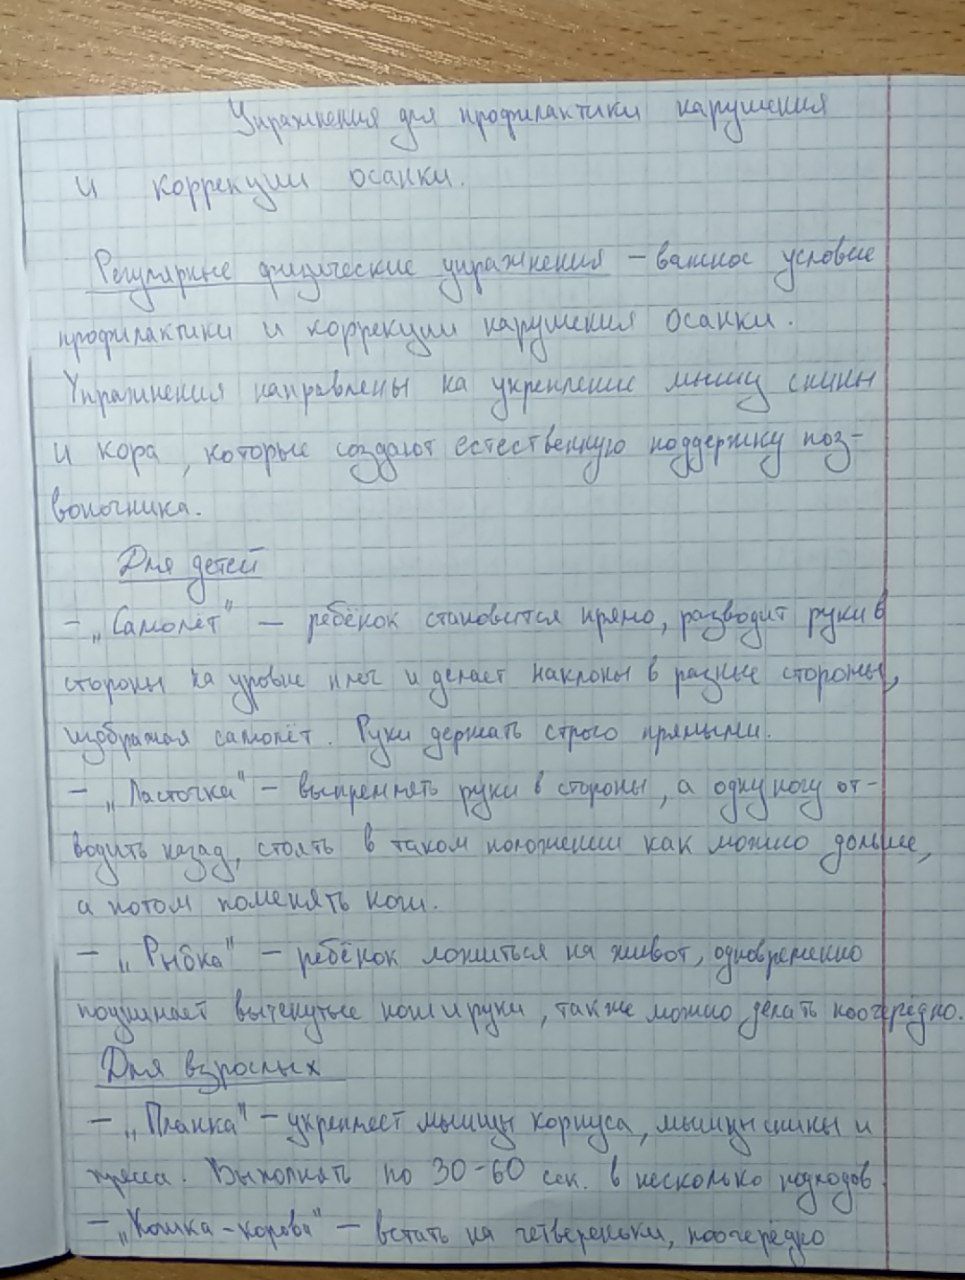 Упражнения для профилактики нарушения
и коррекции осанки.
Регулярные физические упражнения – важное условие
профилактики и коррекции нарушения осанки.
Упражнения направлены на укрепление мышц спины
и кора, которые создают естественную поддержку поз-
воночника.
Для детей
– „Самолёт" – ребёнок становится прямо, разводит руки в
стороны на уровне плеч и делает наклоны в разные стороны,
изображая самолёт. Руки держать строго прямыми.
– „Ласточка" – выпрямлять руки в стороны, а одну ногу от-
водить назад, стоять в таком положении как можно дольше,
а потом поменять ноги.
– „Рыбка" – ребёнок ложиться на живот, одновременно
поднимает вытянутые ноги и руки, также можно делать поочерёдно.
Для взрослых
– „Планка" – укрепляет мышцы корпуса, мышцы спины и
пресса. Выполнять по 30-60 сек. в несколько подходов.
– „Кошка-корова" – встать на четвереньки, поочерёдно